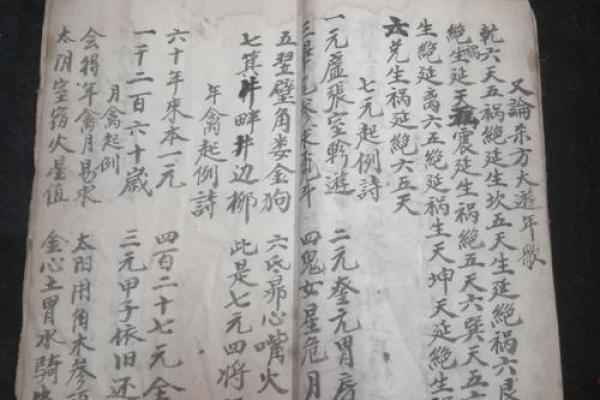 又論东方大遊年歌
乾六天五祸绝延生坎五天生延绝祸六艮
绝生延天震延生祸绝五天六巽天五六
生绝延离六五绝延祸生天坤天延绝生
六兑生祸延绝六五天
七元起例詩
一元虚張室軫遊 二元奎亢胃房
三畢尾参求斗 四鬼女星危月
五翌璧角娄金狗 六氐昴心嘴火
七箕牛畔井边柳 此是七元四将
年禽起例詩
六十年來本一元 四百二十七元全
一千二百六十歲 三元甲子依旧还
月禽起例
会得年禽月易求 太阳用角木参
太阴室宿火星值 金心土胃水騎